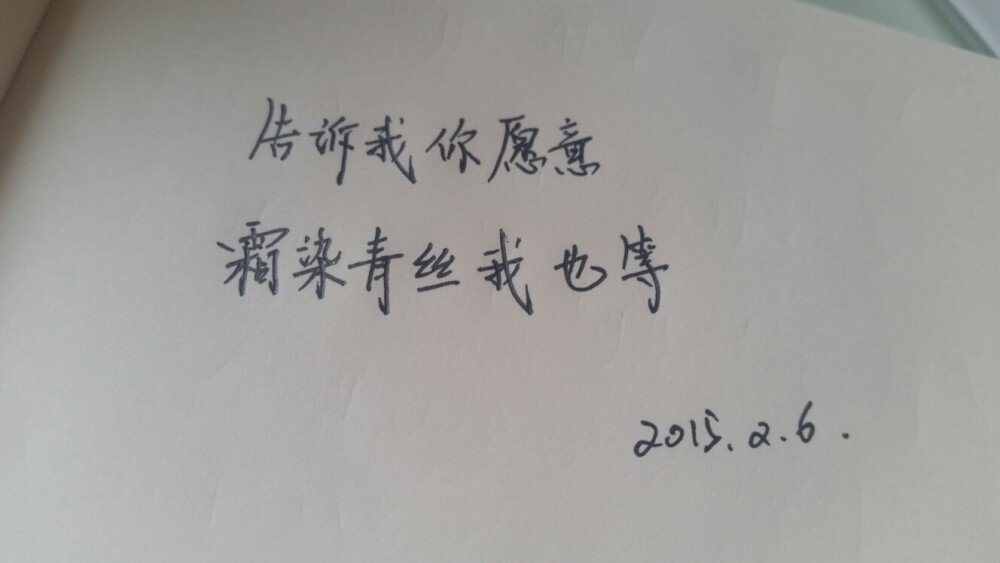 告诉我你愿意
霜染青丝我也等
2015.2.6.